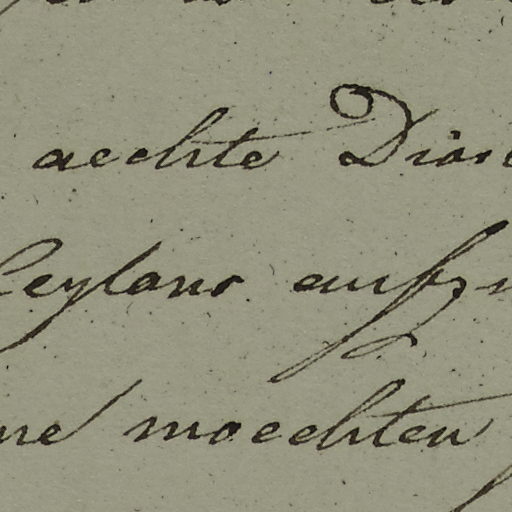 aechte Diam
Ceylans aufzu
ne moechten